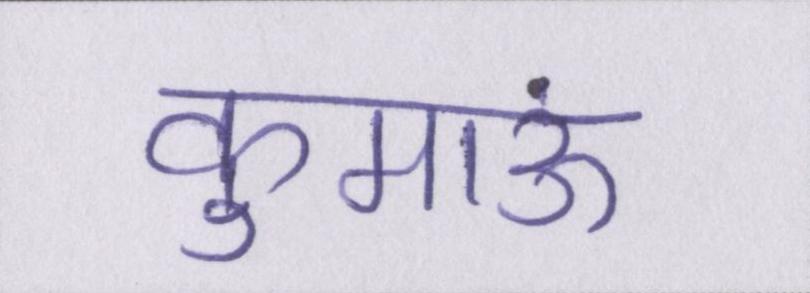 कुमाऊं